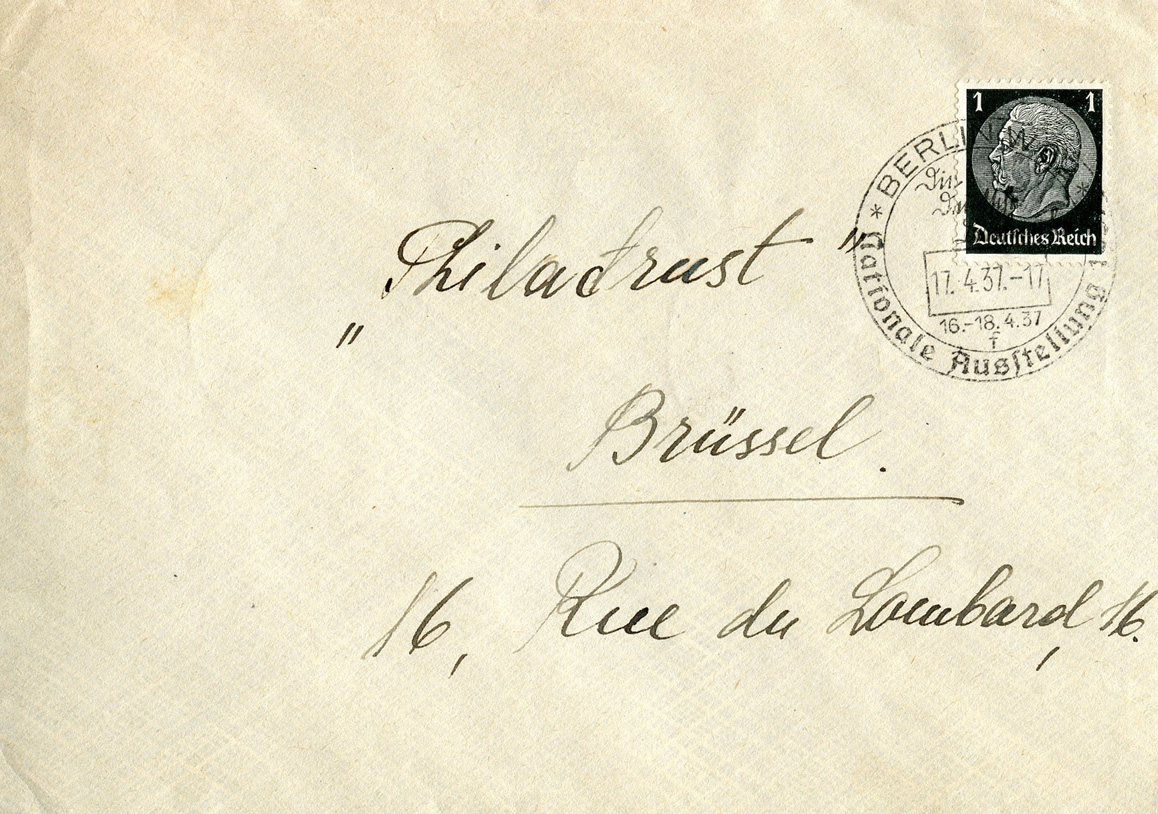 1 1
Deutsches Reich
* BERLIN W *
17.4.37.-17
16.-18.4.37
f
Nationale Ausstellung
"Philatrust"
Brüssel.
16, Rue du Lombard, 16.